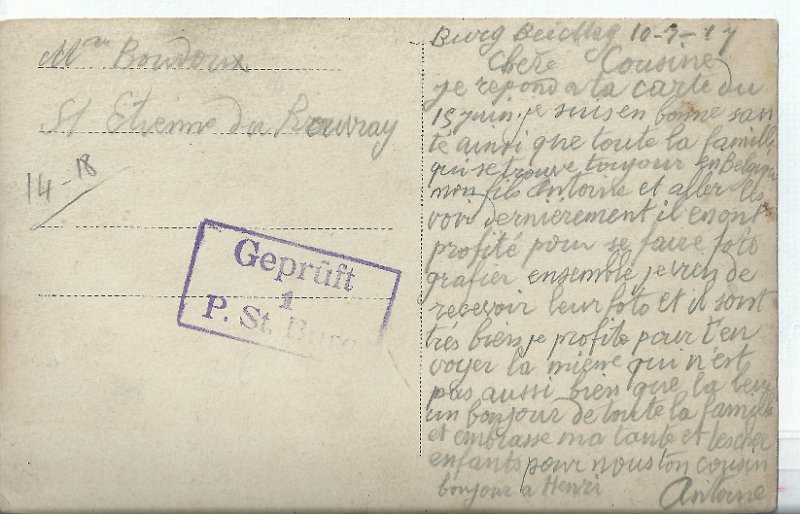 Mme Boudoux
St Etienne du Rouvray
14-18
Geprüft
1
P. St. Burg
Burg 10-7-17
Chere Cousine
je repond a ta carte du
15 juin je suis en bonne san
té ainsi que toute la famille
qui se trouve toujour en Belgique
mon fils Antoine et aller les
voir dernièrement il en ont
profité pour se faire foto
grafier ensemble je vien de
recevoir leur foto et il sont
trés bien je profite pour t'en
voyer la miene qui n'est
pas aussi bien que la leur
un bonjour de toute la famille
et embrasse ma tante et tes cher
enfants pour nous ton cousin
bonjour a Henri Antoine